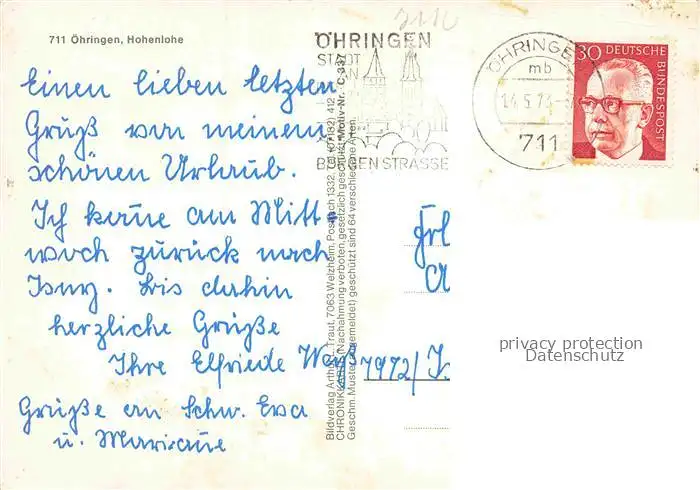 711 Öhringen, Hohenlohe
ÖHRINGEN
STADT
BURGENSTRASSE
ÖHRINGEN
mb
14.5.73
711
30 DEUTSCHE
BUNDESPOST
Einen lieben letzten
Gruß von meinem
schönen Urlaub.
Ich komme am Mitt-
woch zurück nach
Isny. Bis dahin
herzliche Grüße
Ihre Elfriede
Grüße an Schw. Eva
u. Marianne
Frl
7972/
Bildverlag Arthur Traut, 7063 Welzheim, Postfach 1332, Tel. (07182) 412
CHRONIKKARTE (Nachahmung verboten, gesetzlich geschützt) Motiv-Nr. C 337
Geschm. Muster (angemeldet) geschützt sind 64 verschiedene Arten.
privacy protection
Datenschutz